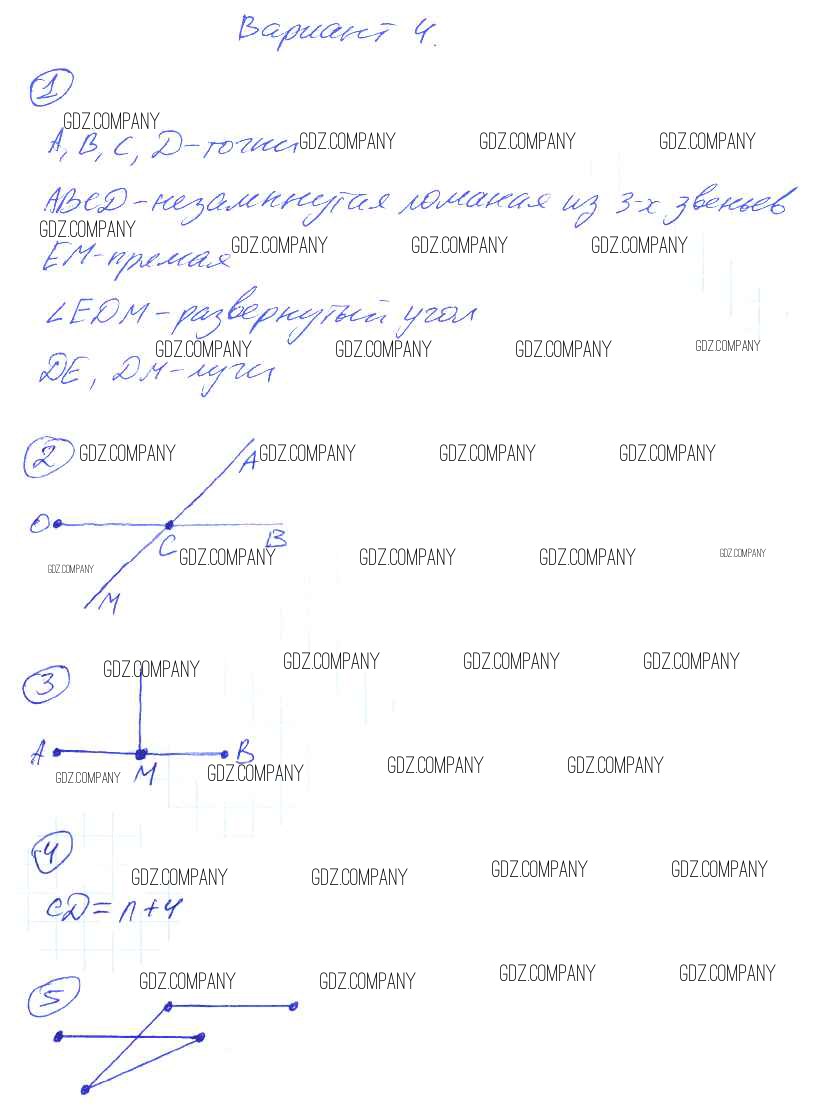 Вариант 4.
1
GDZ.COMPANY
A, B, C, D - точки GDZ.COMPANY GDZ.COMPANY GDZ.COMPANY
ABCD - незамкнутая ломаная из 3-х звеньев
GDZ.COMPANY GDZ.COMPANY GDZ.COMPANY GDZ.COMPANY
EM - прямая
∠EDM - развернутый угол
GDZ.COMPANY GDZ.COMPANY GDZ.COMPANY GDZ.COMPANY
DE, DM - лучи
2 GDZ.COMPANY A GDZ.COMPANY GDZ.COMPANY GDZ.COMPANY
O
C B
GDZ.COMPANY GDZ.COMPANY GDZ.COMPANY GDZ.COMPANY GDZ.COMPANY
M
3 GDZ.COMPANY GDZ.COMPANY GDZ.COMPANY GDZ.COMPANY
A B
GDZ.COMPANY M GDZ.COMPANY GDZ.COMPANY GDZ.COMPANY
4
GDZ.COMPANY GDZ.COMPANY GDZ.COMPANY GDZ.COMPANY
CD = n + 4
5 GDZ.COMPANY GDZ.COMPANY GDZ.COMPANY GDZ.COMPANY